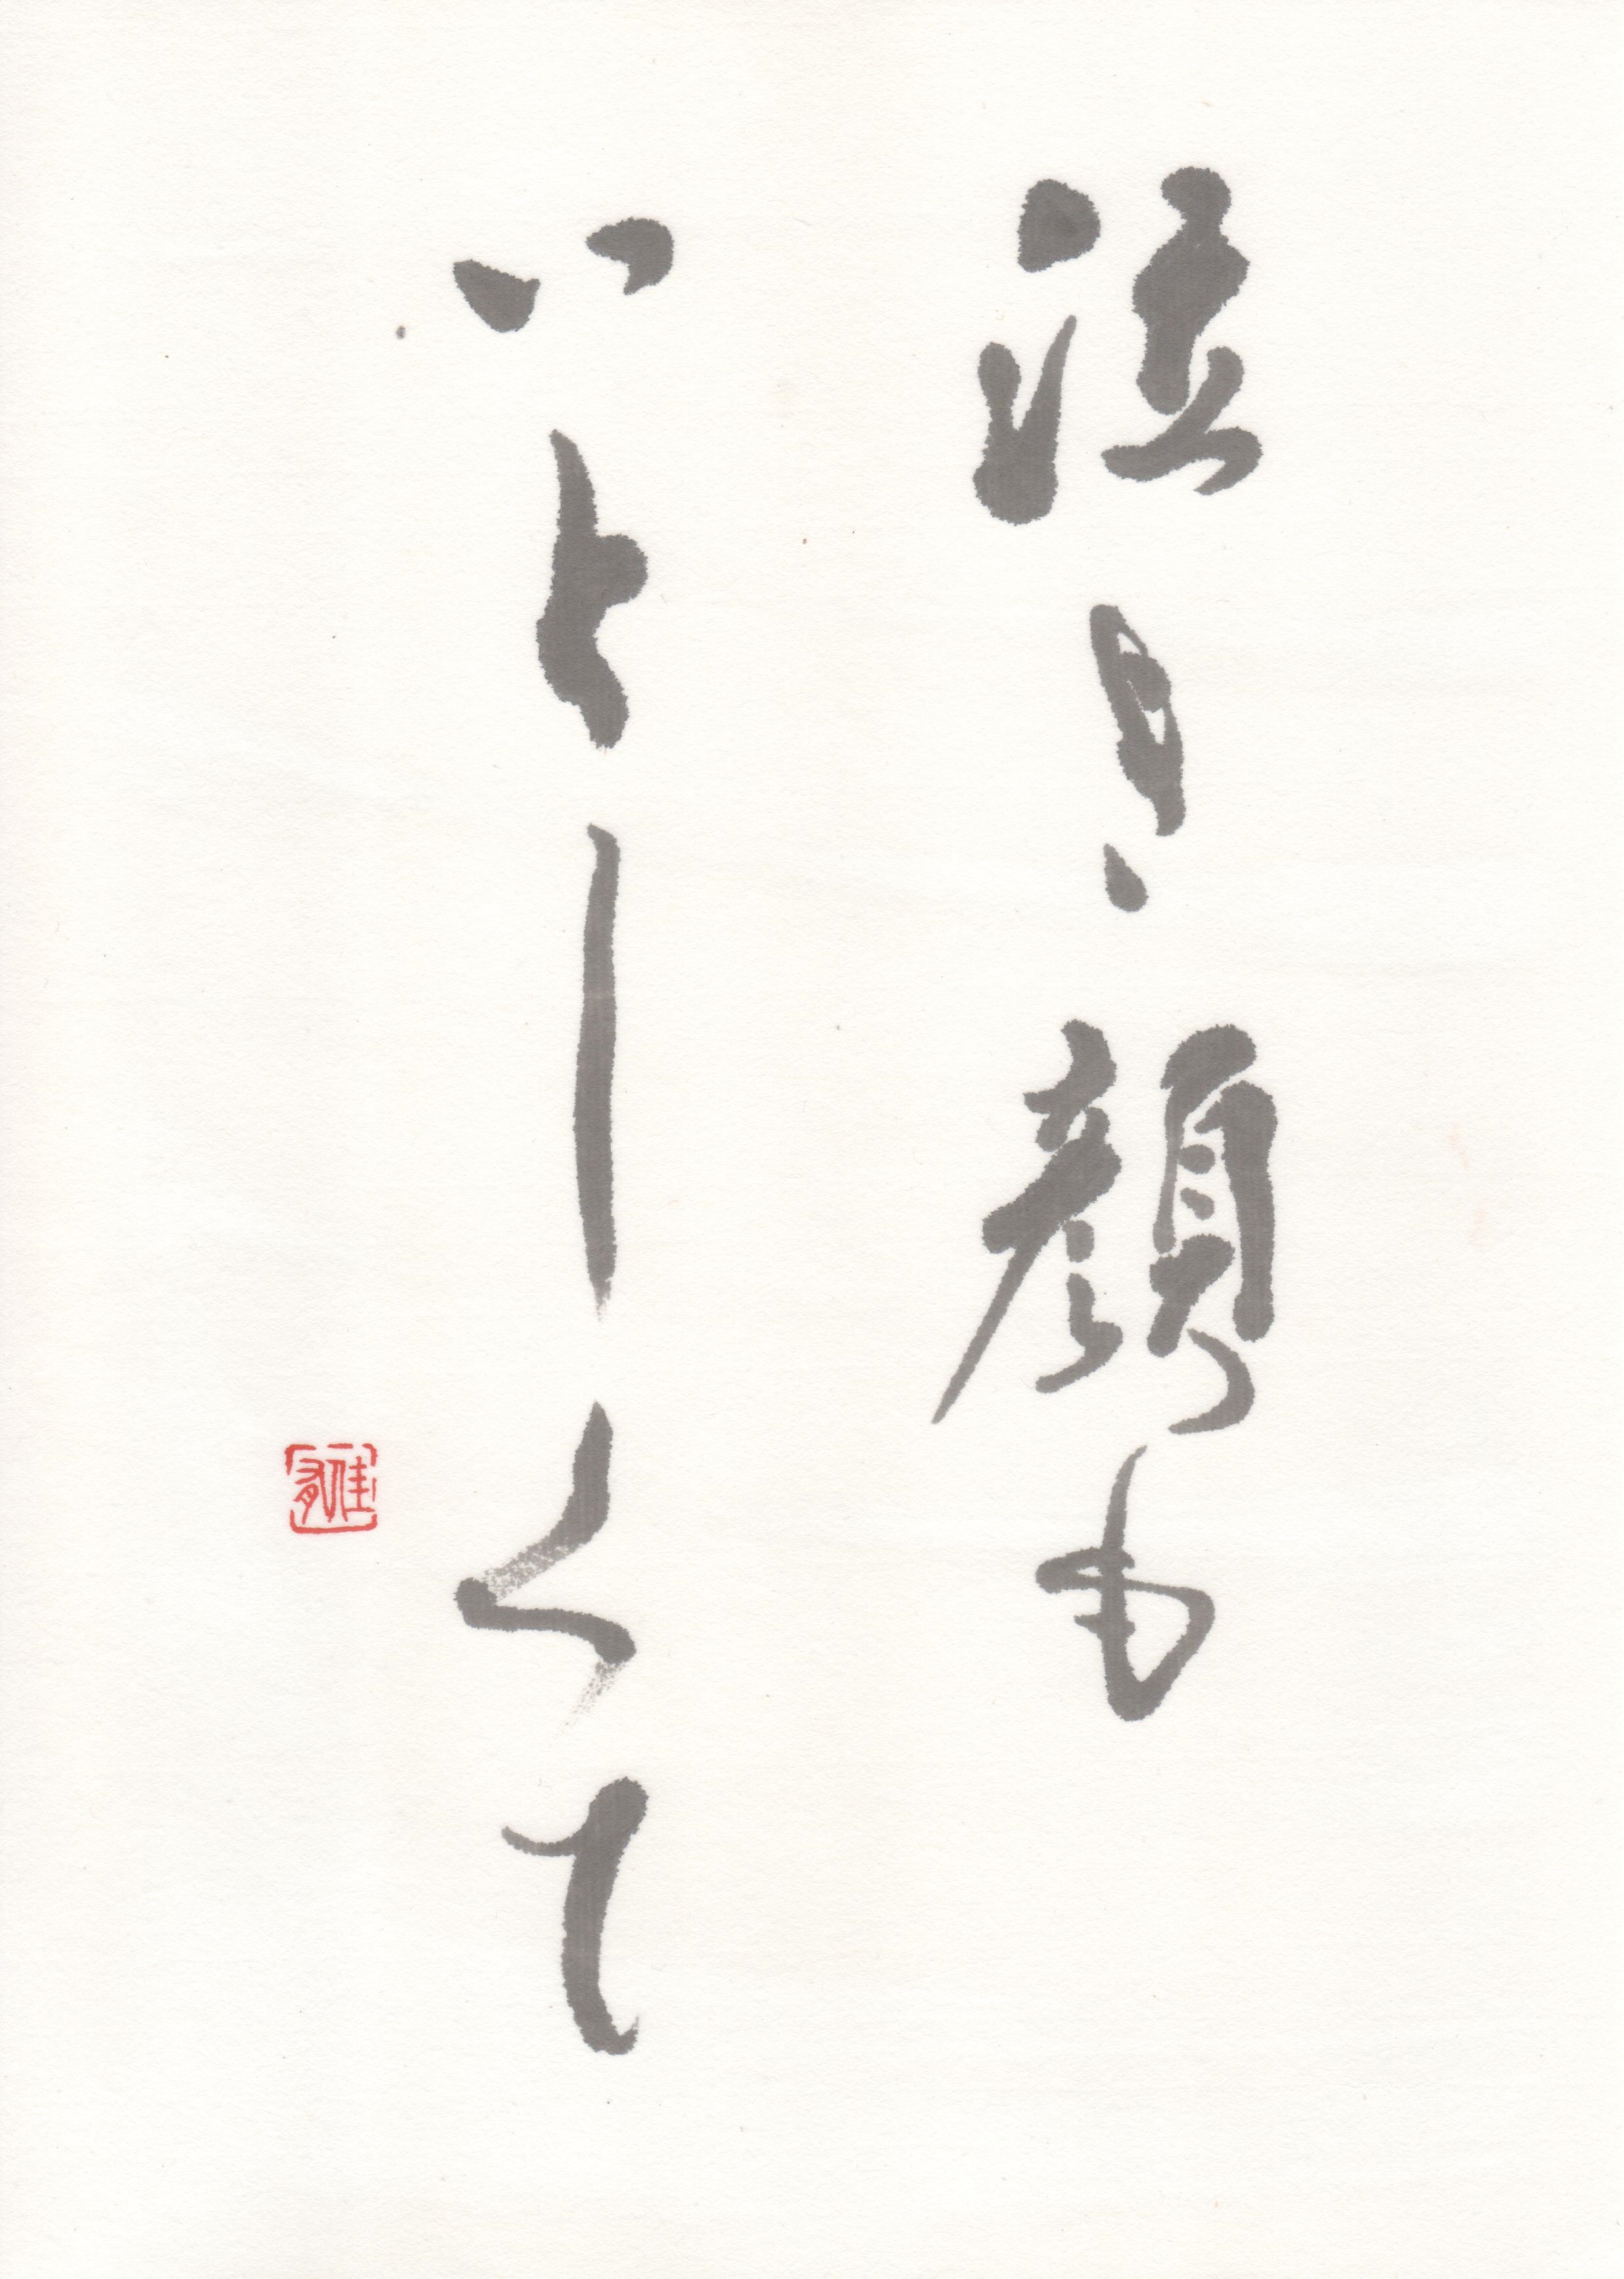 泣き顔も
いとしくて